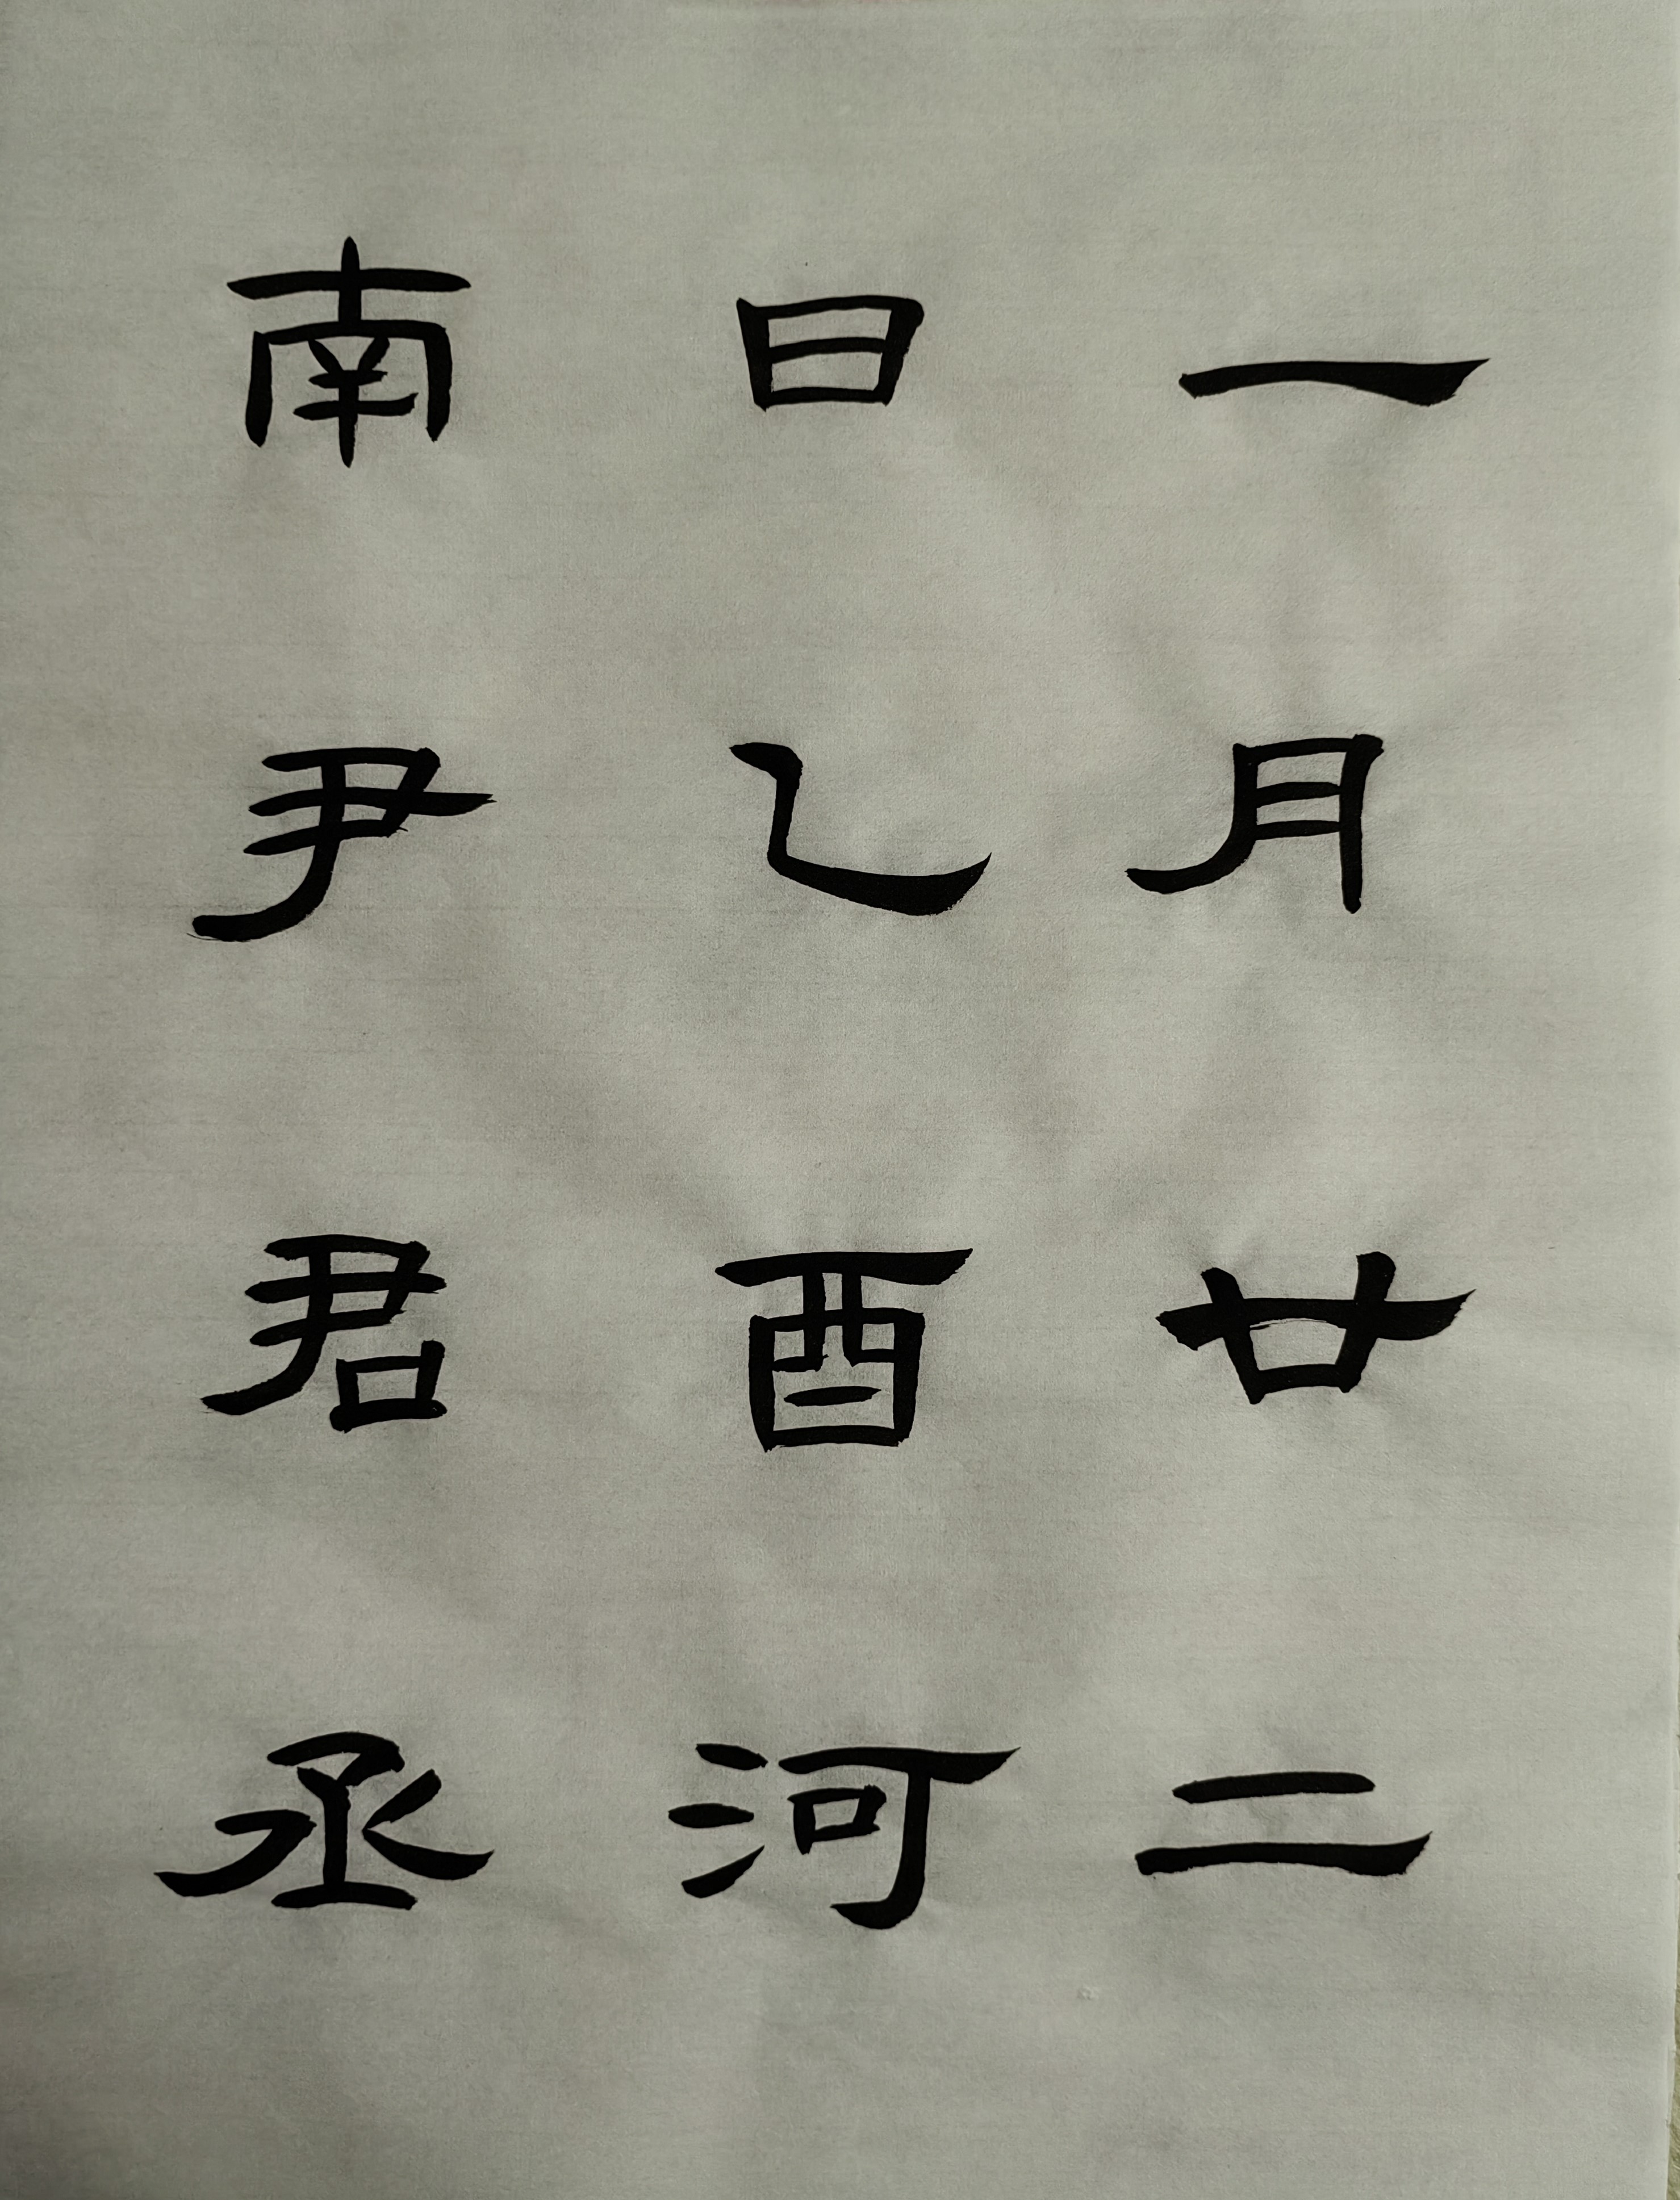 一月廿二
日乙酉河
南尹君丞